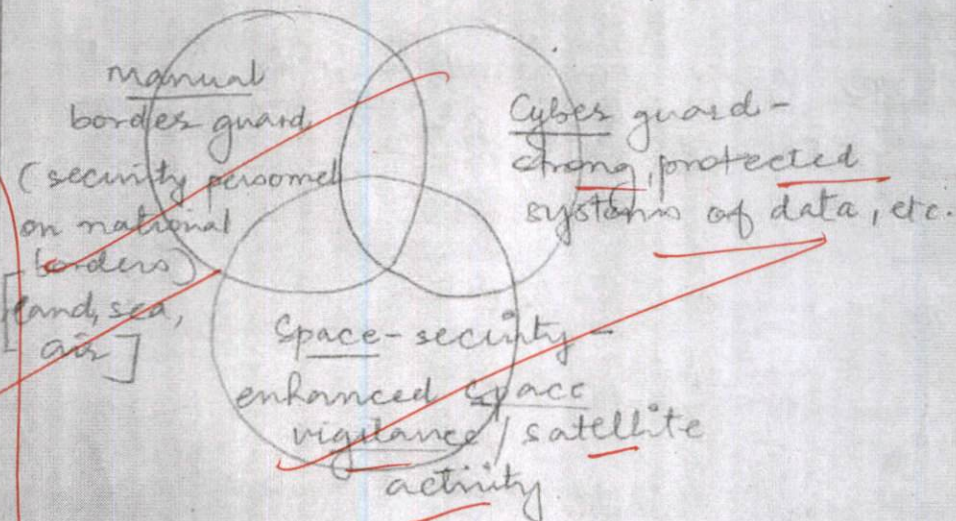 Manual
border guard
(security personnel
on national
borders)
[land, sea,
air]
Cyber guard -
strong, protected
systems of data, etc.
Space-security -
enhanced space
vigilance / satellite
activity